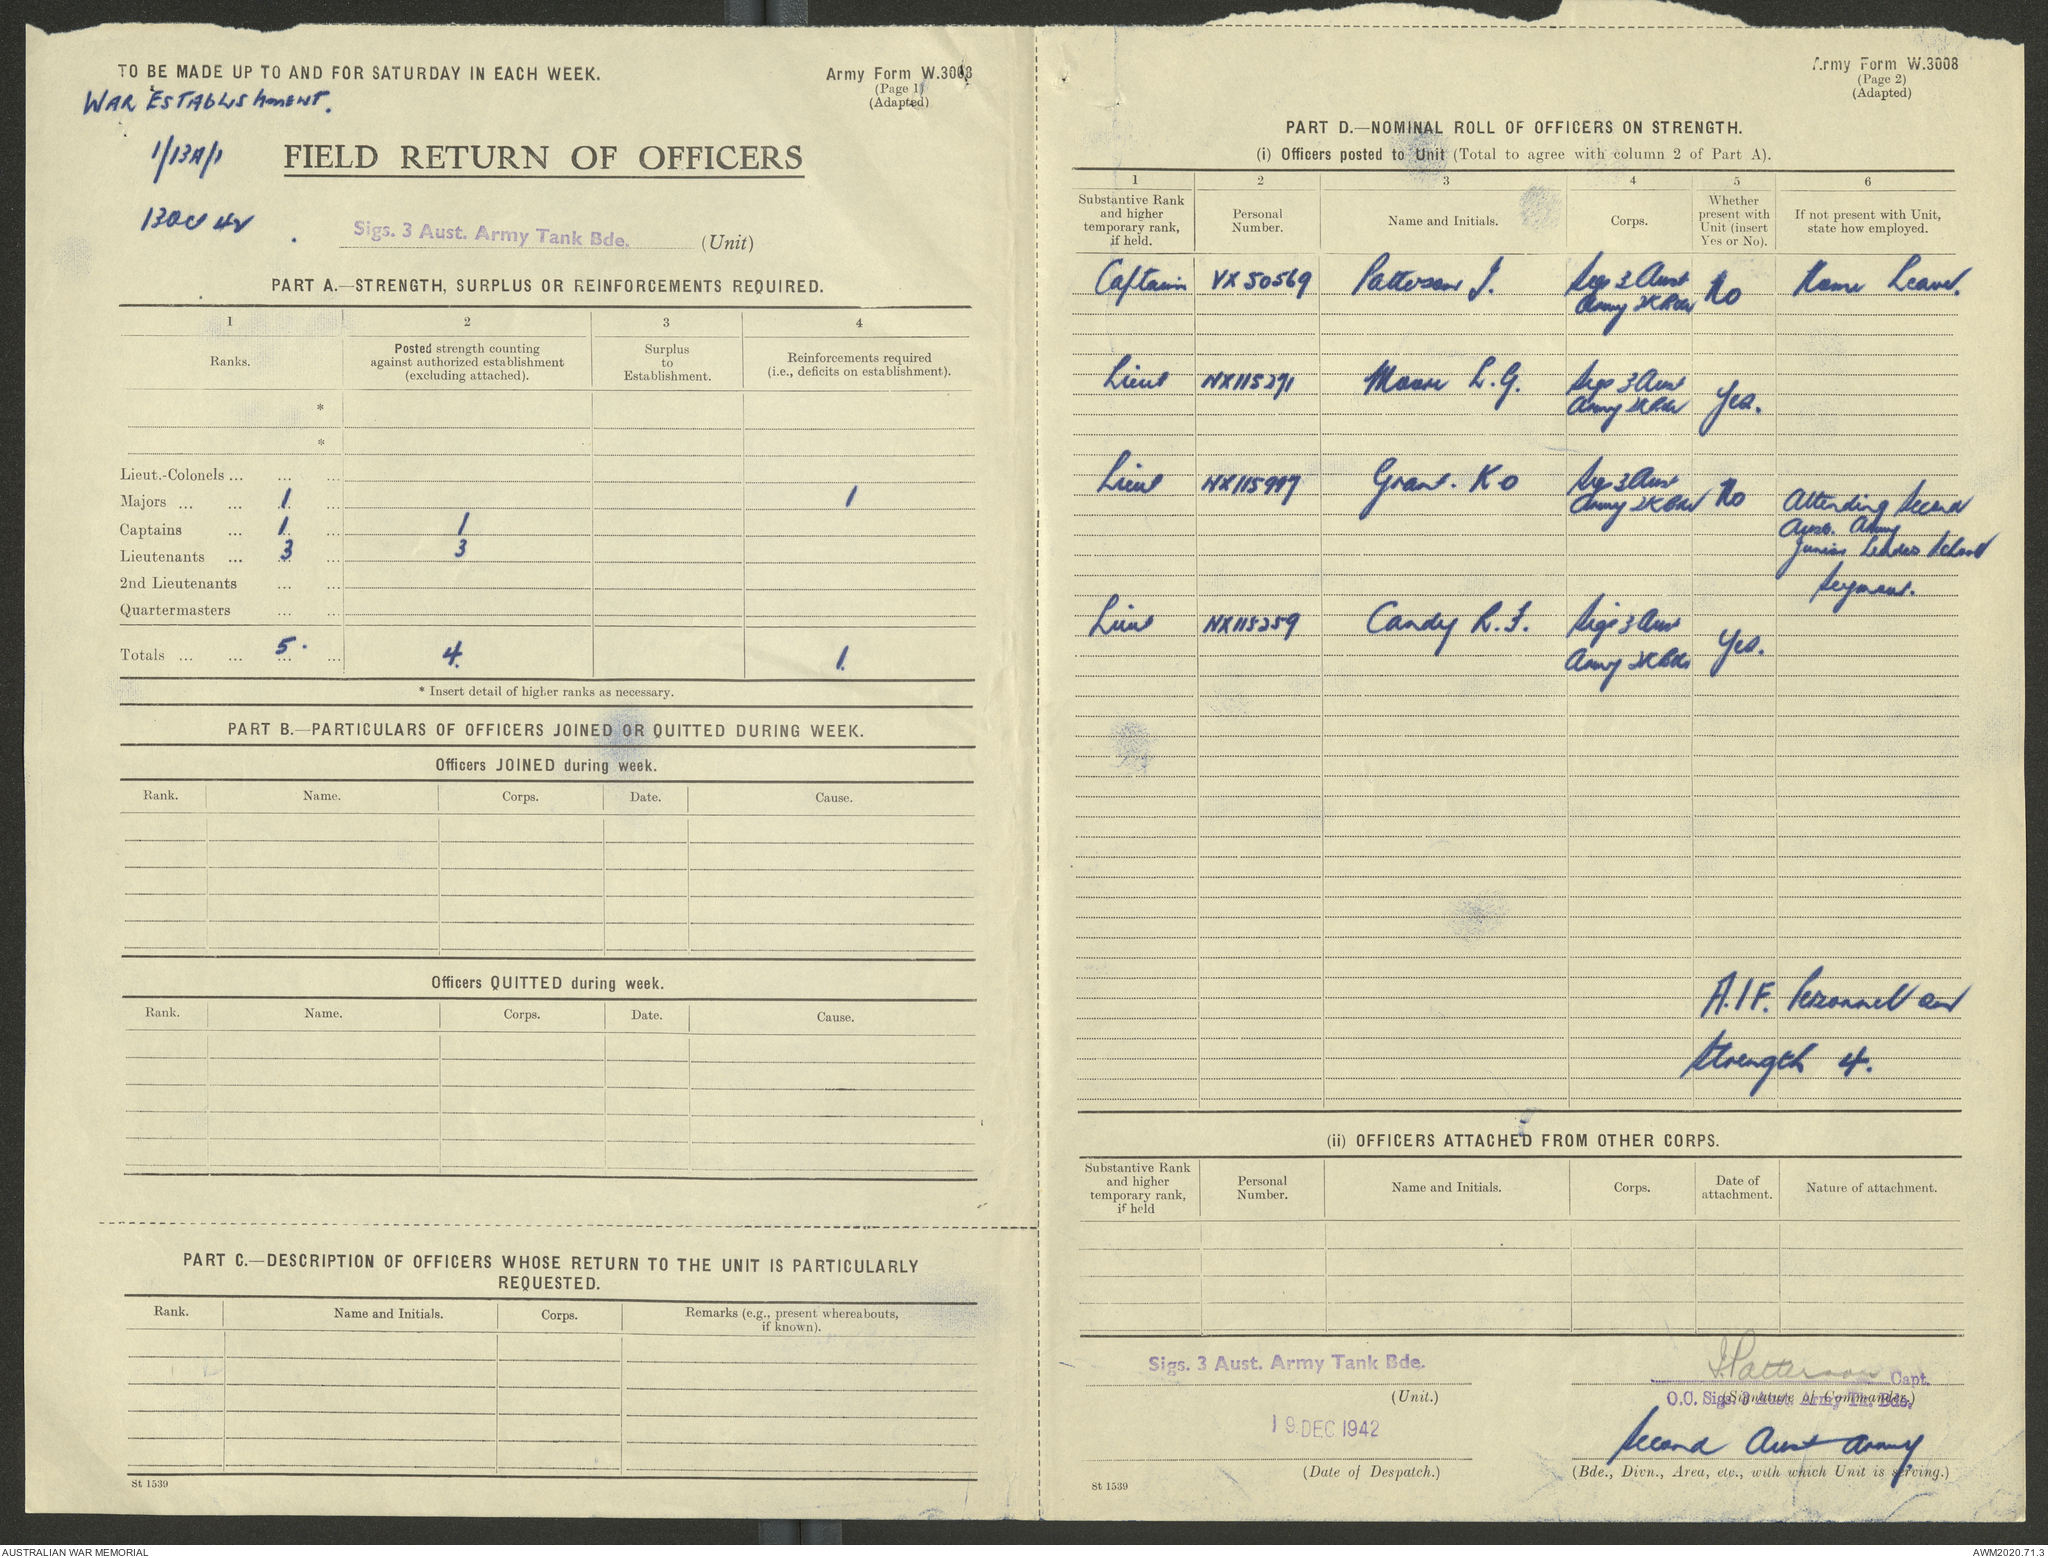 TO BE MADE UP TO AND FOR SATURDAY IN EACH WEEK.
Army Form W.3008
(Page 1)
(Adapted)
WAR ESTABLISHMENT.
1/13A/1
FIELD RETURN OF OFFICERS
Sigs. 3 Aust. Army Tank Bde. (Unit)
PART A.—STRENGTH, SURPLUS OR REINFORCEMENTS REQUIRED.
1 2 3 4
Ranks. Posted strength counting against authorized establishment (excluding attached). Surplus to Establishment. Reinforcements required (i.e., deficits on establishment).
*
*
Lieut.-Colonels ... ... ...
Majors ... ... 1 ... 1
Captains ... 1 ... 1
Lieutenants ... 3 ... 3
2nd Lieutenants ... ...
Quartermasters ... ...
Totals ... ... 5. ... 4. 1.
* Insert detail of higher ranks as necessary.
PART B.—PARTICULARS OF OFFICERS JOINED OR QUITTED DURING WEEK.
Officers JOINED during week.
Rank. Name. Corps. Date. Cause.
Officers QUITTED during week.
Rank. Name. Corps. Date. Cause.
PART C.—DESCRIPTION OF OFFICERS WHOSE RETURN TO THE UNIT IS PARTICULARLY
REQUESTED.
Rank. Name and Initials. Corps. Remarks (e.g., present whereabouts, if known).
St 1539
Army Form W.3008
(Page 2)
(Adapted)
PART D.—NOMINAL ROLL OF OFFICERS ON STRENGTH.
(i) Officers posted to Unit (Total to agree with column 2 of Part A).
1 2 3 4 5 6
Substantive Rank and higher temporary rank, if held. Personal Number. Name and Initials. Corps. Whether present with Unit (insert Yes or No). If not present with Unit, state how employed.
Captain VX50569 Patterson J. Sigs 3 Aust No Home Leave.
Army TK Bde
Lieut NX115291 Moore L.G. Sigs 3 Aust Yes.
Army TK Bde
Lieut Grant. K O Sigs 3 Aust No Attending Second
Army TK Bde Aust. Army
Junior Leaders School
Seymour.
Lieut NX115259 Candy R. F. Sigs 3 Aust Yes.
Army TK Bde
A.I.F. Personnel on
Strength 4.
(ii) OFFICERS ATTACHED FROM OTHER CORPS.
Substantive Rank and higher temporary rank, if held Personal Number. Name and Initials. Corps. Date of attachment. Nature of attachment.
Sigs. 3 Aust. Army Tank Bde.
(Unit.)
J Patterson Capt.
(Signature of Commander.)
O.C. Sigs. 3 Aust. Army Tk. Bde.
19 DEC 1942
(Date of Despatch.)
Second Aust Army
(Bde., Divn., Area, etc., with which Unit is serving.)
St 1539
AUSTRALIAN WAR MEMORIAL
AWM2020.71.3